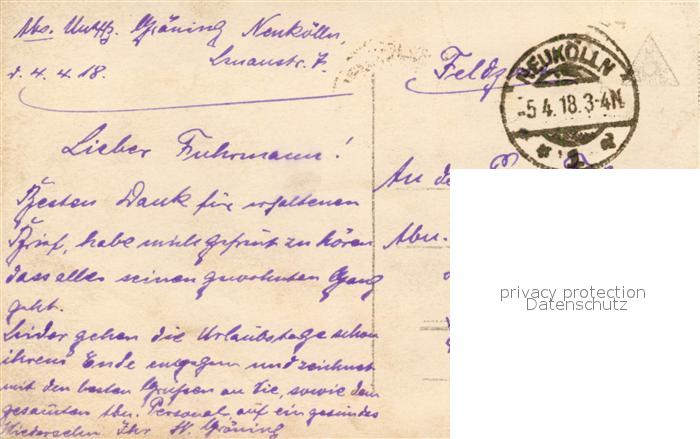 Abs. Untffz. Gröning Neukölln,
7.
d. 4.4.18.
Feldp
NEUKÖLLN
-5.4.18.3-4N
* 2 a
Lieber Fuhrmann!
Besten Dank für erhaltenen
Brief, habe mich gefreut zu hören
dass alles seinen gewohnten Gang
geht.
Leider gehen die Urlaubstage schon
ihrem Ende entgegen und zeichnet
mit den besten Grüßen an Sie, sowie dem
gesamten Abn. Personal, auf ein gesundes
Wiedersehn Ihr W. Gröning
An de
Abn.
privacy protection
Datenschutz